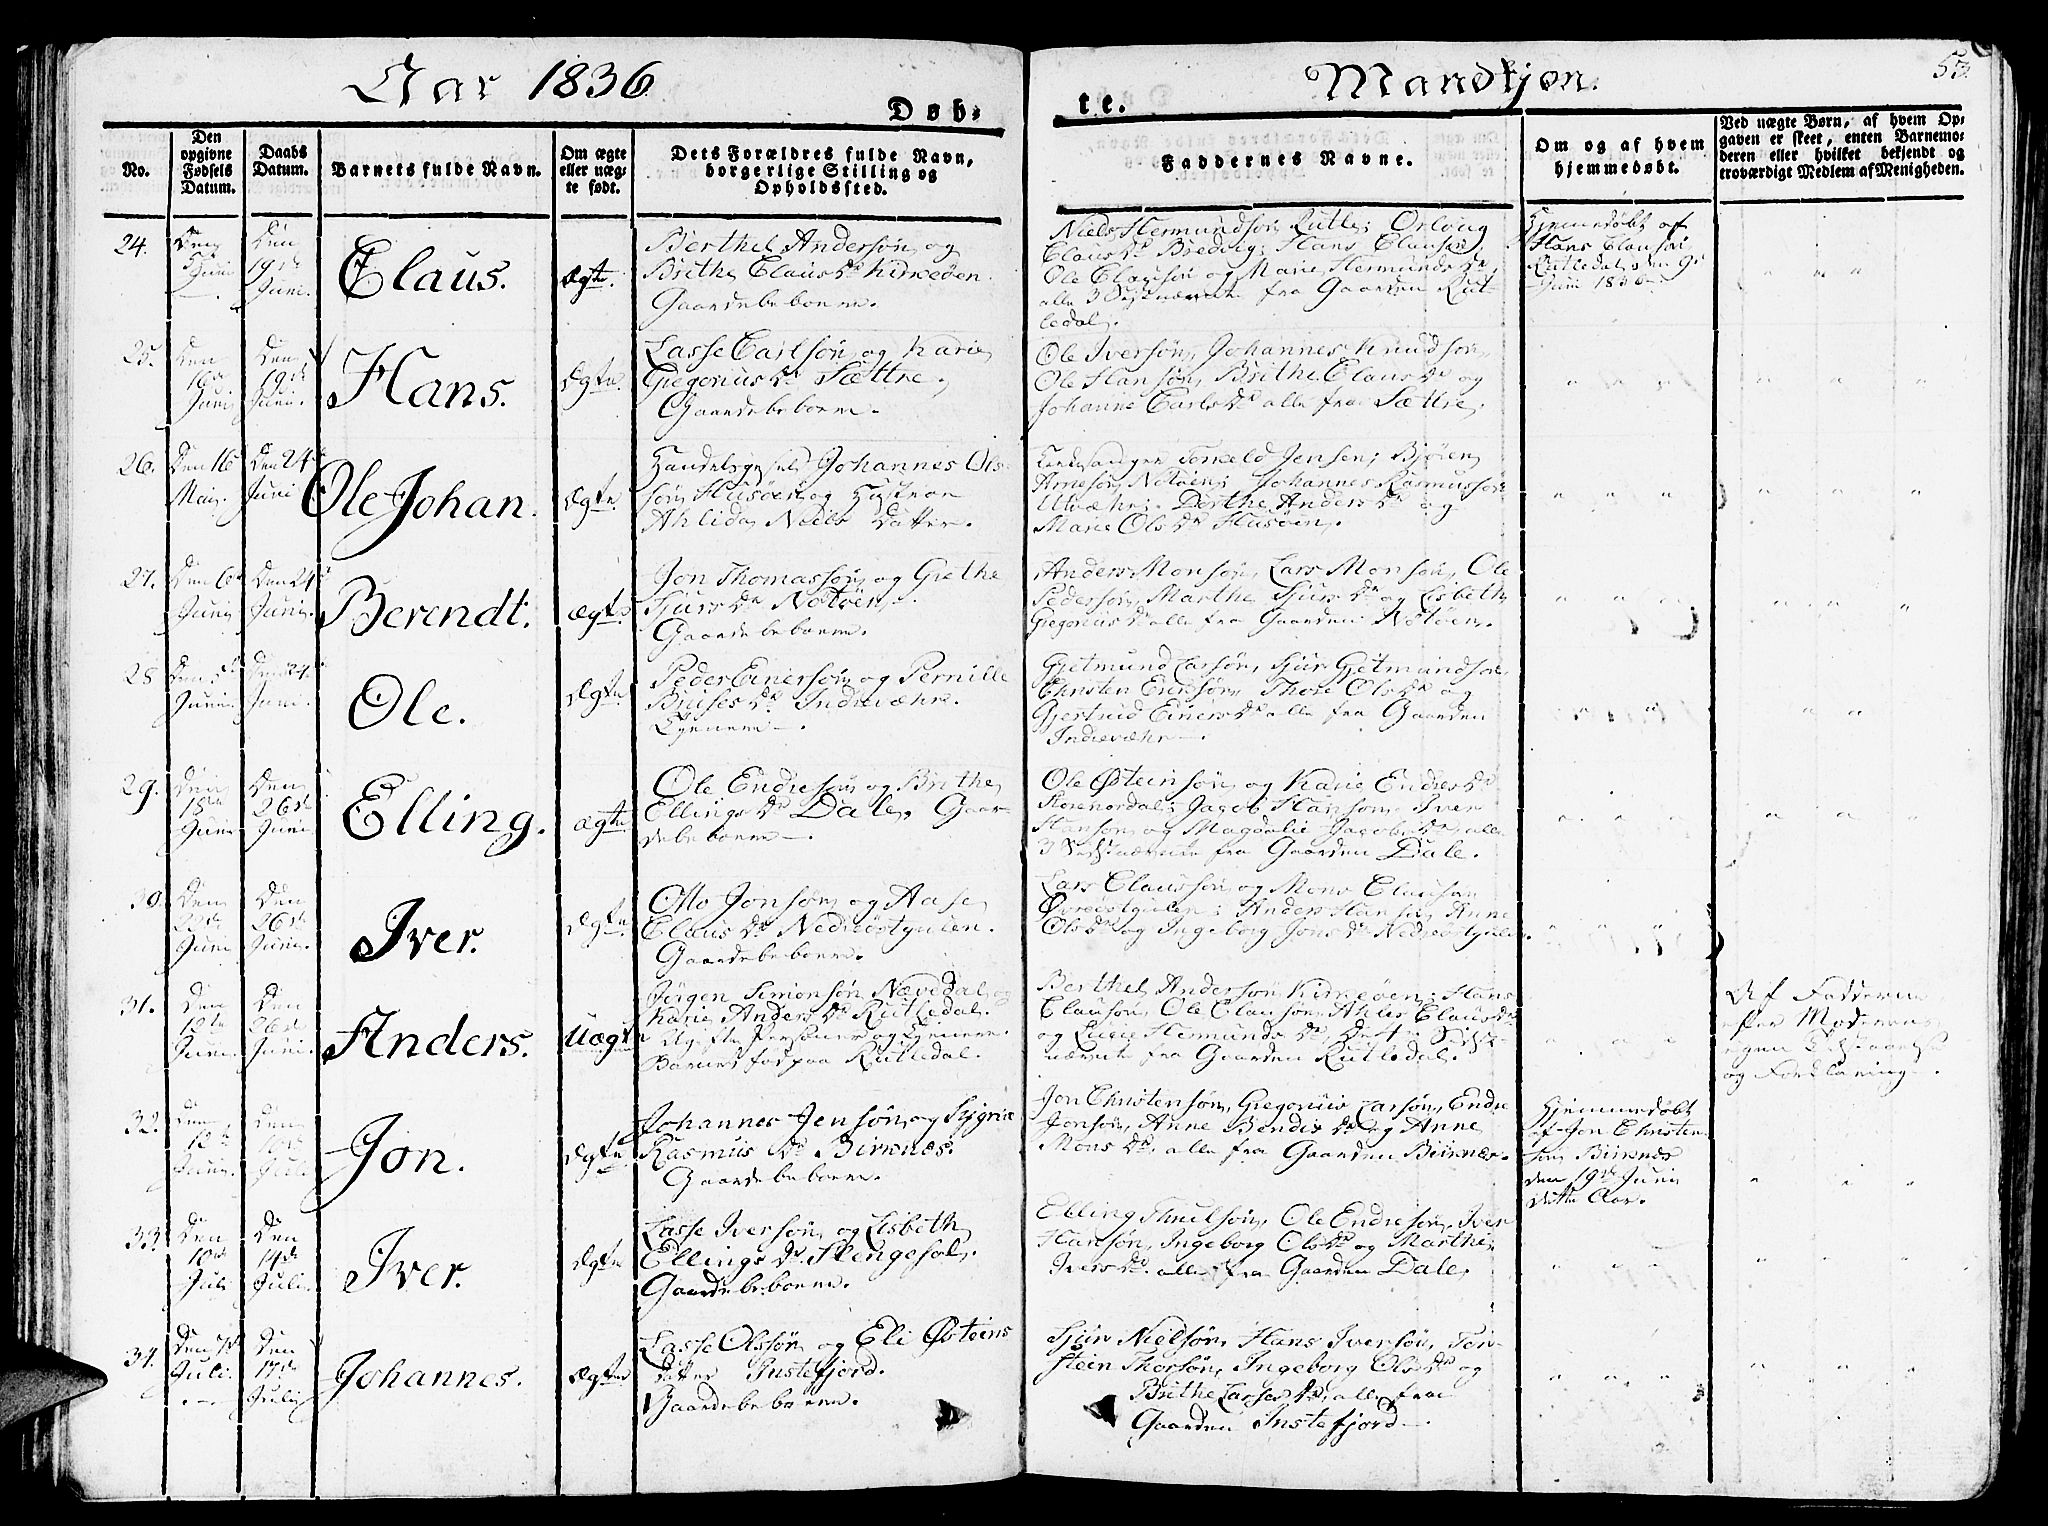 Aar 1836
Døb-
te.
Mandkjøn.
53.
No.
Den opgivne Fødsels Datum.
Daabs Datum.
Barnets fulde Navn.
Om ægte eller uægte født.
Dets Forældres fulde Navn, borgerlige Stilling og Opholdssted.
Faddernes Navne.
Om og af hvem hjemmedøbt.
Ved uægte Børn, af hvem Opgaven er skeet, enten Barnemoderen eller hvilket bekjendt og troværdigt Medlem af Menigheden.
24.
Den
Juni
Den 19de Juni.
Claus.
Ægte.
Berthel Andersøn og
Brithe Clausdr
Gaardebeboere.
Niels Hermundsøn Rutle; Orloug
Clausdr Breding; Hans Clausøn,
Ole Clausøn og Marie Hermundsdr
alle 3 fra Gaarden Rut-
ledal.
Hjemmedøbt af
Hans Clausøn
Rutledal den 9de
Juni 1836
25.
Den 16de Juni
Den 19de Juni.
Hans.
Ægte.
Lasse Carlsøn og Karie
Gregoriusdr Sættre.
Gaardebeboere.
Ole Iversøn, Johannes Knudsøn,
Ole Hansøn, Brithe Clausdr og
Johanne Carlsdr alle fra Sættre.
26.
Den 16de Mai.
Den 24de Juni
Ole Johan.
Ægte.
Johannes Ols-
søn Husøen og Hustroe
Ahlida Niels Datter.
Jensen; Bjøren
Arnesøn Notøen; Johannes Rasmussøn
Utvæhr; Dorthe Andersdr og
Marie Olsdr Husøen.
27.
Den 6te Juni
Den 24de Juni.
Berendt.
Ægte.
Jon Thomassøn og Grethe
Sjursdr Notøen.
Gaardebeboere.
Anders Monsøn, Lars Monsøn, Ole
Pedersøn, Marthe Sjursdr og Lisbeth
Gregoriusdr alle fra Gaarden Notøen.
28
Den 5te Juni.
Den 24de Juni.
Ole.
Ægte.
Peder Einersøn og Pernille
Brusesdr Indrevæhre.
Gjetmund Larsøn, Sjur Gjetmundsøn,
Christen Ericksøn, Thore Olsdr og
Gjertrud Einersdr alle fra Gaarden
Indrevæhr.
29.
Den 18de Juni
Den 26de Juni
Elling.
Ægte
Ole Endresøn og Brithe
Ellingsdr Dale, Gaar-
debeboere.
Ole Østeinsøn og Karie Endresdr
Jacob Hansøn, Iver
Hansøn, og Magdalie Jacobsdr, alle
3 Sidstnævnte fra Gaarden Dale.
30.
Den 22de Juni
Den 26de Juni.
Iver.
Ægte.
Otto Jonsøn og Aase
Clausdr Nedreøstgulen.
Gaardebeboere.
Lars Claussøn og Mons Clausøn
Øvreøstgulen; Anders Hansøn, Anne
Olsdr og Ingeborg Jonsdr Nedreøstgulen.
31.
Den 12te Juni.
Den 26de Juni.
Anders.
Uægte
Jørgen Simonsøn Nævedal og
Karie Andersdr Rutledal.
Ugifte Personer og Tjenere.
Barnet født paa Rutledal.
Berthel Andersøn Hans
Clausøn, Ole Clausøn, Ahlis Clausdr
og Lucie Hermundsdr, De 4re Sidst-
nævnte fra Gaarden Rutledal.
Af Fadderne
efter Moderens
egen Tilstaaelse
og Forklaring.
32.
Den 12te Juni.
Den 10de Juli
Jon.
Ægte
Johannes Jensøn og Sygrie
Rasmusdr Birknes.
Gaardebeboere.
Jon Christensøn, Gregorius Larsøn, Endre
Jonsøn, Anne Bendixdr og Anne
Monsdr, alle fra Gaarden Birknes.
Hjemmedøbt
af Jon Christen-
søn Birknes
den 19de Juni
dette Aar.
33.
Den 10de Juli
Den 14de Juli.
Iver.
Ægte
Lasse Iversøn og Lisbeth
Ellingsdr Flengesol.
Gaardebeboere.
Elling Ole Endresøn, Iver
Hansøn, Ingeborg Olsdr og Marthe
Iversdr alle fra Gaarden Dale.
34.
Den 7de Juli.
Den 17de Juli
Johannes.
Ægte
Lasse Olssøn og Eli Østeins
Datter Instefjord.
Gaardebeboere.
Sjur Nielsøn, Hans Iversøn, Tor-
stein Thorsøn, Ingeborg Olsdr og
Brithe Larsesdr, alle fra
Gaarden Instefjord.